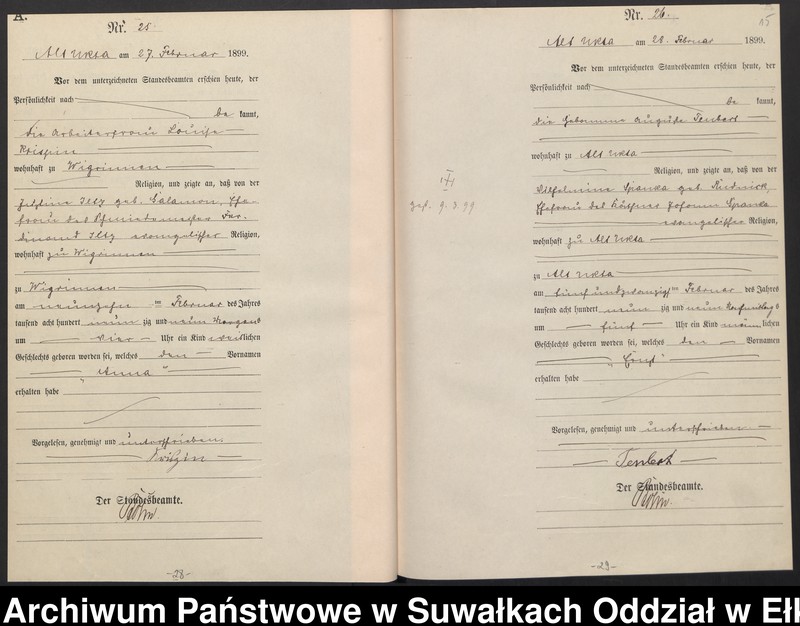 A.
Nr. 25.
Alt Ukta am 27. Februar 1899.
Vor dem unterzeichneten Standesbeamten erschien heute, der
Persönlichkeit nach
be kannt,
die Arbeiterfrau Louise
wohnhaft zu Wigrinnen
Religion, und zeigte an, daß von der
geb. Salamon, Ehe-
frau des Schmiedemeister Fer-
dinand evangelischer Religion,
wohnhaft zu Wigrinnen
zu Wigrinnen
am neunzehn ten Februar des Jahres
tausend acht hundert neun zig und neun Morgens
um vier Uhr ein Kind weiblichen
Geschlechts geboren worden sei, welches den Vornamen
"Anna"
erhalten habe
Vorgelesen, genehmigt und unterschrieben.
Der Standesbeamte.
-28-
Nr. 26.
15
Alt Ukta am 28. Februar 1899.
Vor dem unterzeichneten Standesbeamten erschien heute, der
Persönlichkeit nach
be kannt,
die Hebamme Auguste Tenbert
wohnhaft zu Alt Ukta
Religion, und zeigte an, daß von der
Wilhelmine geb.
Ehefrau des Käthners Johann
evangelischer Religion,
wohnhaft zu Alt Ukta
zu Alt Ukta
am fünfundzwanzigsten Februar des Jahres
tausend acht hundert neun zig und neun Nachmittags
um fünf Uhr ein Kind männlichen
Geschlechts geboren worden sei, welches den Vornamen
"Ernst"
erhalten habe
Vorgelesen, genehmigt und unterschrieben
Tenbert
Der Standesbeamte.
-29-
Archiwum Państwowe w Suwałkach Oddział w Ełk